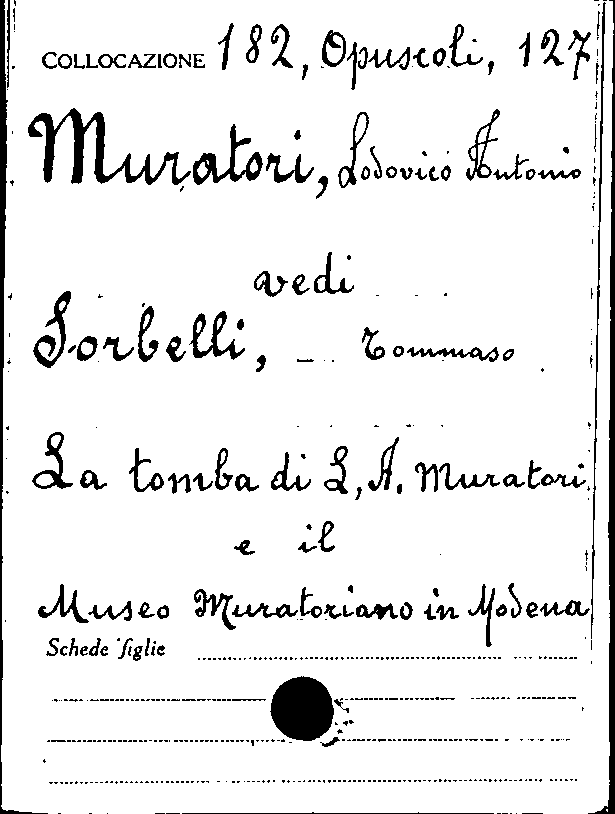 COLLOCAZIONE 182, Opuscoli, 127
Muratori, Lodovico Antonio
vedi
Sorbelli, – Tommaso
La tomba di L. A. Muratori
e il
Museo Muratoriano in Modena
Schede figlie